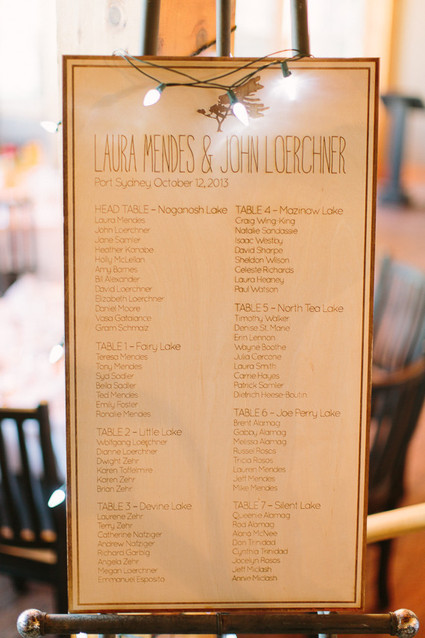 LAURA MENDES & JOHN LOERCHNER
Port Sydney October 12, 2013
HEAD TABLE - Noganosh Lake
Laura Mendes
John Loerchner
Jane Samler
Heather Kanabe
Holly McLellan
Amy Barnes
Bill Alexander
David Loerchner
Elizabeth Loerchner
Daniel Moore
Vasa Gatakance
Gram Schmalz
TABLE 1 - Fairy Lake
Teresa Mendes
Tony Mendes
Syd Sadler
Bella Sadler
Ted Mendes
Emily Foster
Ronalie Mendes
TABLE 2 - Little Lake
Wolfgang Loerchner
Dianne Loerchner
Dwight Zehr
Karen Taflemire
Karen Zehr
Brian Zehr
TABLE 3 - Devine Lake
Laurene Zehr
Terry Zehr
Catherine Nafziger
Andrew Nafziger
Richard Garbig
Angela Zehr
Megan Loerchner
Emmanuel Esposito
TABLE 4 - Mazinaw Lake
Craig Wing-King
Natalie Sandassie
Isaac Westby
David Sharpe
Sheldon Wilson
Celeste Richards
Laura Heaney
Paul Watson
TABLE 5 - North Tea Lake
Timothy Walker
Denise St. Marie
Erin Lennon
Wayne Boothe
Julia Cercone
Laura Smith
Carrie Hayes
Patrick Samler
Dietrich Heese-Boutin
TABLE 6 - Joe Perry Lake
Brent Alamag
Gabby Alamag
Melissa Alamag
Russel Rosos
Tricia Rosos
Lauren Mendes
Jeff Mendes
Mike Mendes
TABLE 7 - Silent Lake
Queenie Alamag
Rod Alamag
Alana McNee
Don Trinidad
Cynthia Trinidad
Jocelyn Rosos
Jeff Midash
Annie Midash